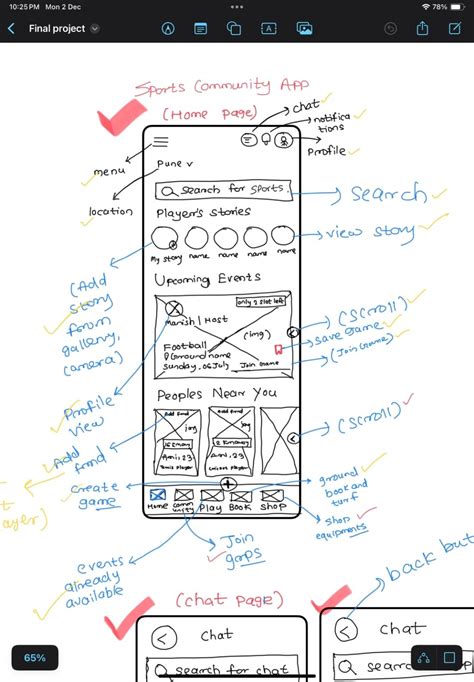 10:25 PM Mon 2 Dec
78%
Final project
Sports Community App
(Home Page)
chat
notifica
tions
Profile
menu
location
Pune v
Search for sports.
Search
Player's Stories
My story name name name name
view story
(Add
story
from
gallery,
camera)
Upcoming Events
only 2 slot left
Manish | Host
(img)
Football
Ground name
Sunday, 06 July
Join Game
(Scroll)
save Game
(Join Game)
Profile
view
Peoples Near You
Add frnd
Add frnd
img
img
Ami, 23
Ami, 23
Tennis Player
Cricket Player
(Scroll)
Add
frnd
ayer)
create
game
Home Comm
unity Play Book Shop
ground
book and
turf
Shop
equipments
Join
grops
events
already
available
back but
(chat page)
chat
Search for chat
chat
65%